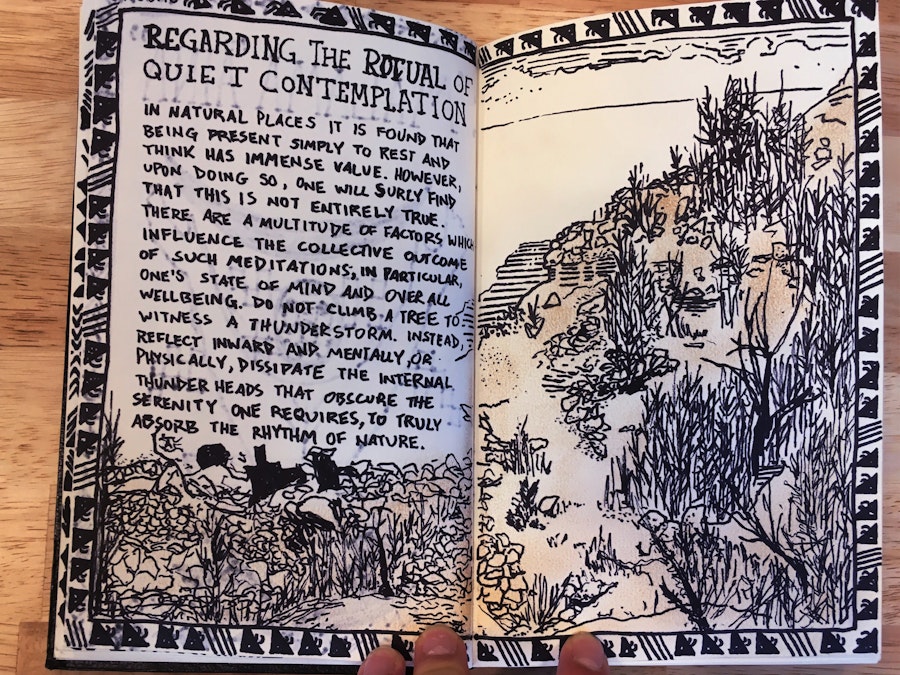 REGARDING THE RITUAL OF
QUIET CONTEMPLATION
IN NATURAL PLACES IT IS FOUND THAT
BEING PRESENT SIMPLY TO REST AND
THINK HAS IMMENSE VALUE. HOWEVER,
UPON DOING SO, ONE WILL SURLY FIND
THAT THIS IS NOT ENTIRELY TRUE.
THERE ARE A MULTITUDE OF FACTORS WHICH
INFLUENCE THE COLLECTIVE OUTCOME
OF SUCH MEDITATIONS; IN PARTICULAR,
ONE'S STATE OF MIND AND OVERALL
WELLBEING. DO NOT CLIMB A TREE TO
WITNESS A THUNDERSTORM. INSTEAD,
REFLECT INWARD AND MENTALLY, OR
PHYSICALLY, DISSIPATE THE INTERNAL
THUNDER HEADS THAT OBSCURE THE
SERENITY ONE REQUIRES, TO TRULY
ABSORB THE RHYTHM OF NATURE.